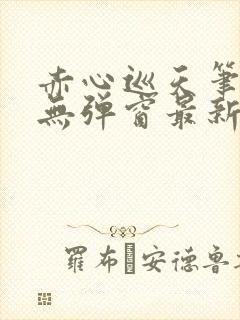 赤心巡天筆
無彈窗最新
羅布·安德魯